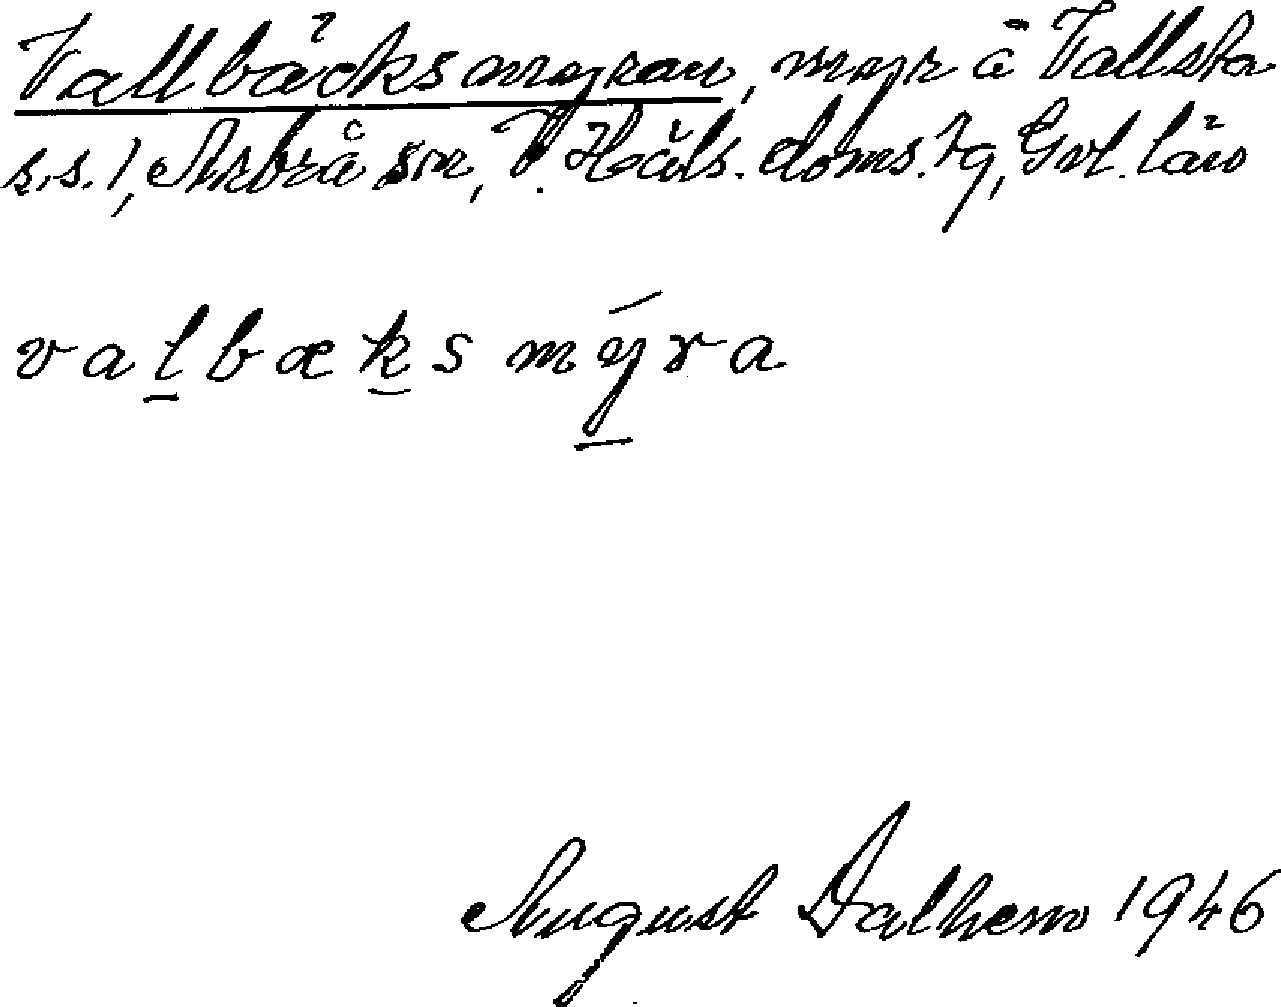 Vallbäcksmyran, myr å Vallsta
s.s.), Arbrå sn, V. Häls. doms.ƒg, Gvl. län
valbæksmýra
August Dalhem 1946